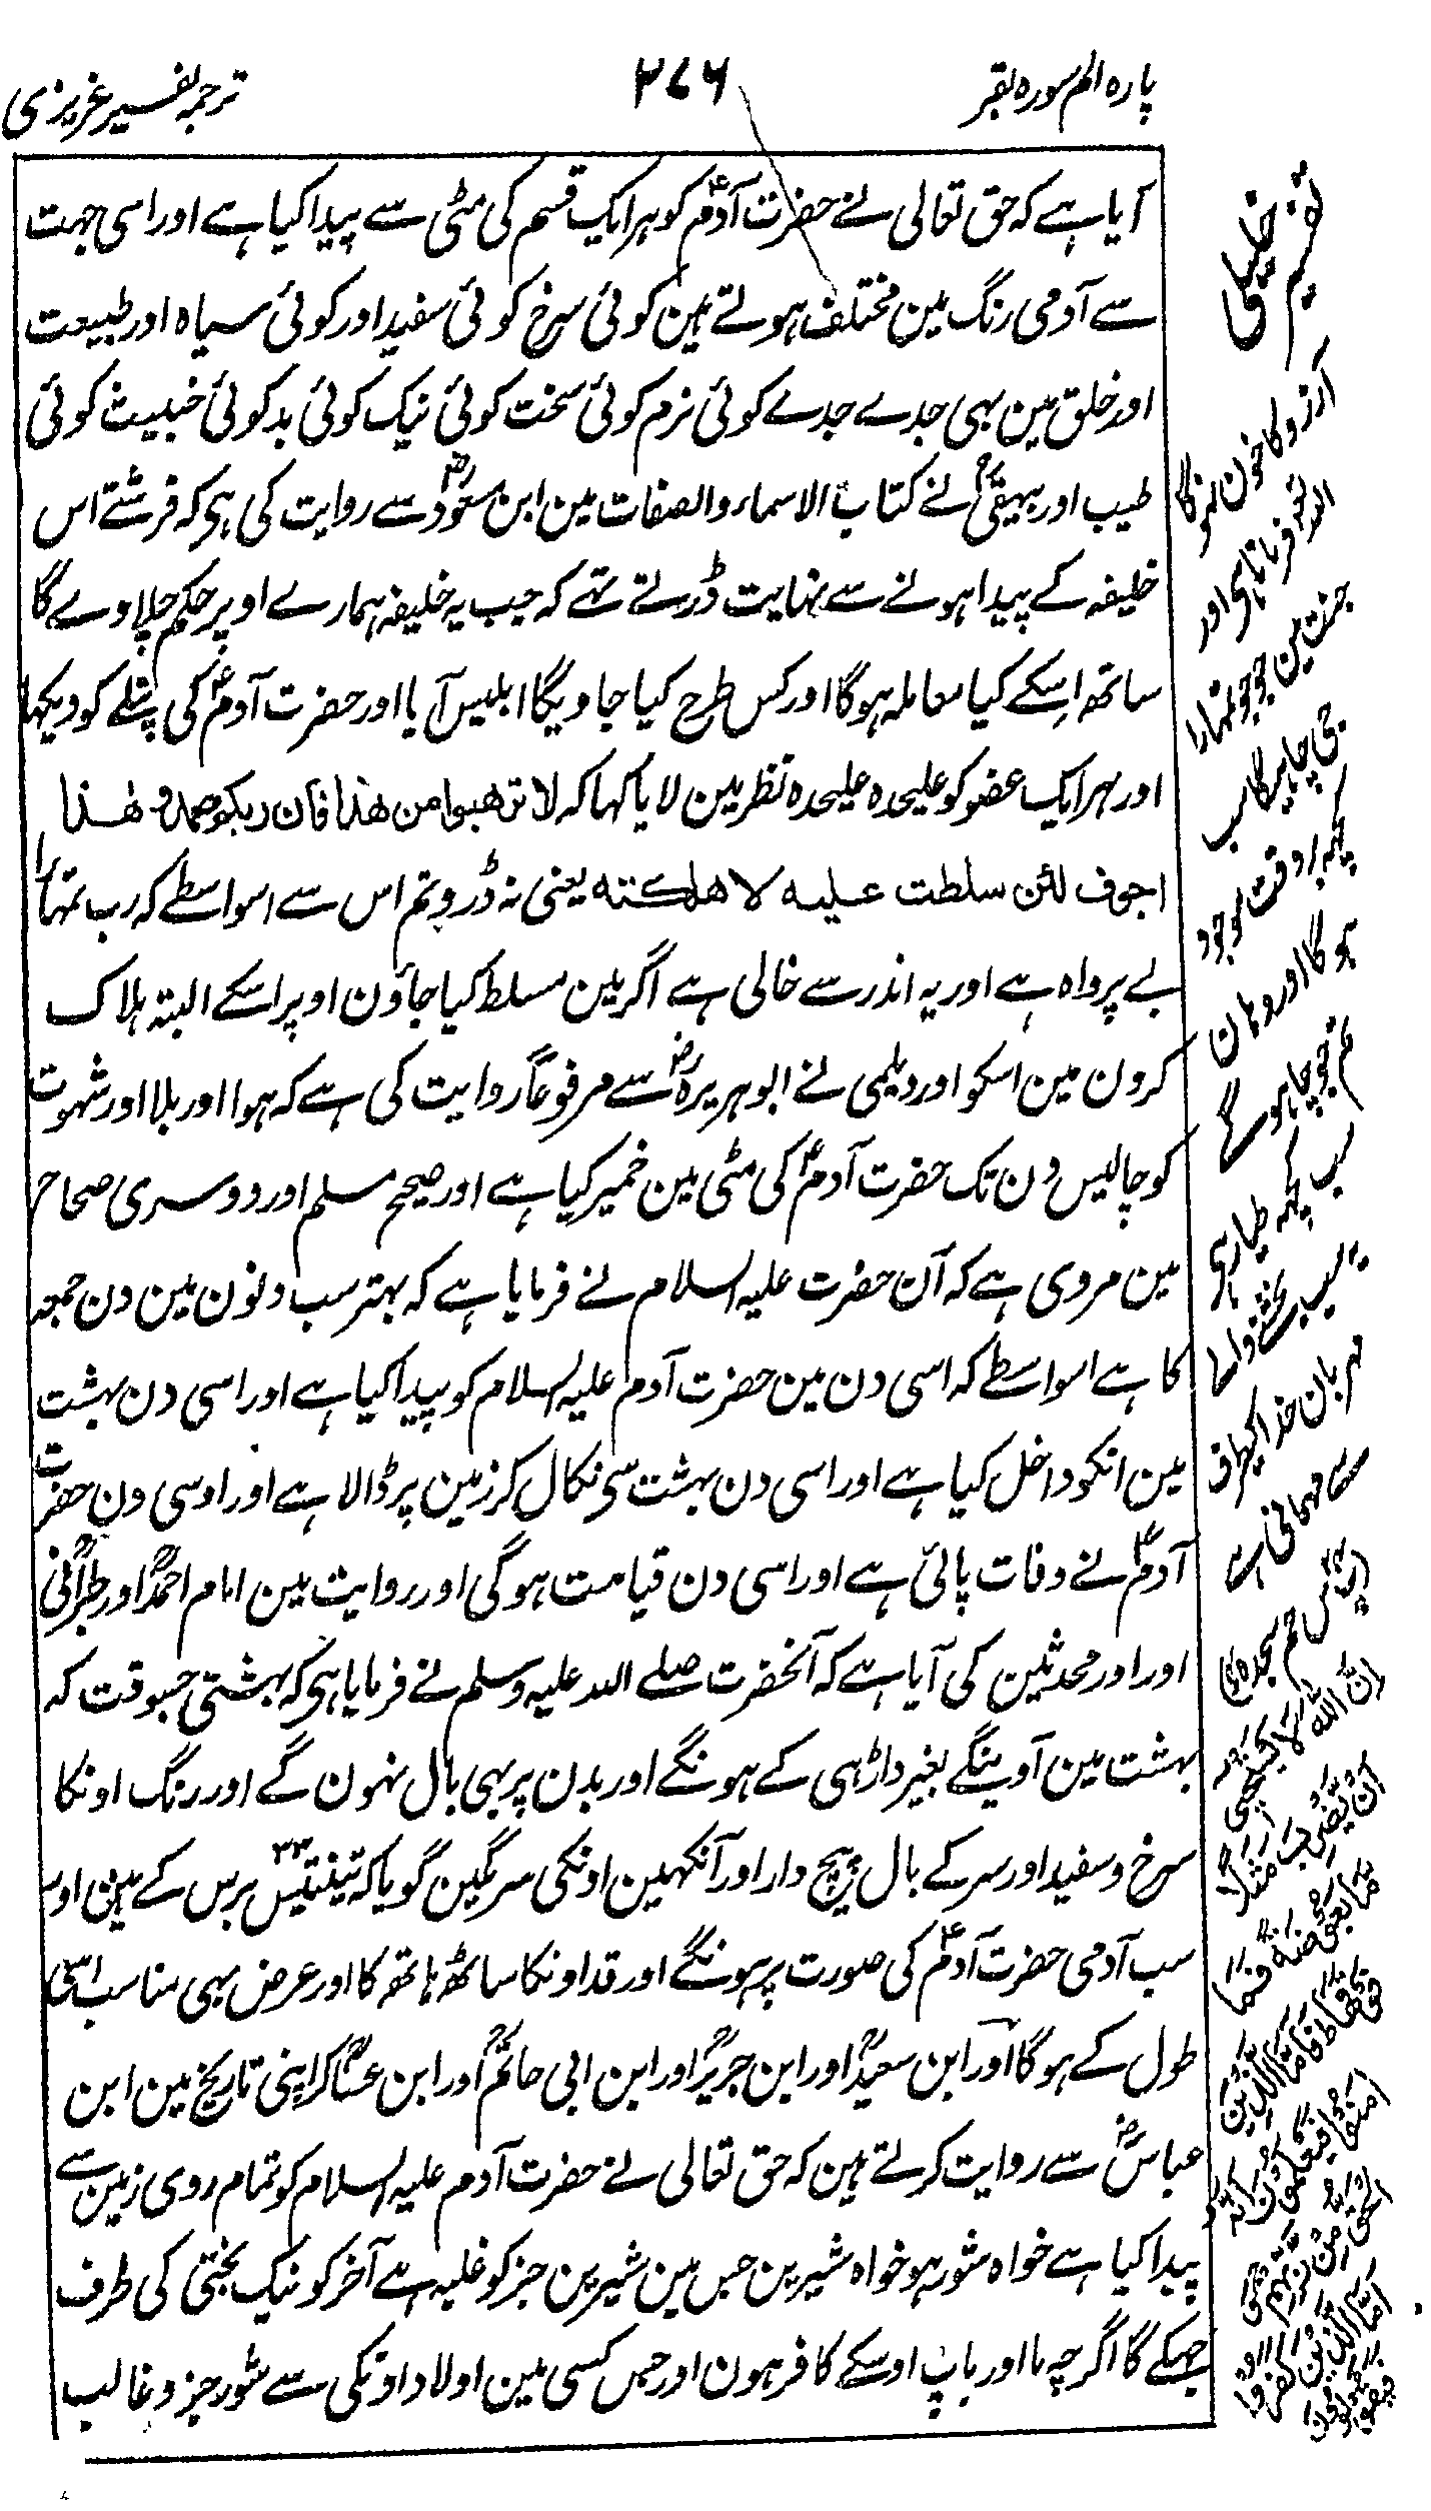 پارہ الم سورہ بقر
۲۷۶
ترجمہ تفسیر عزیزی
آیا ہے کہ حق تعالی نے حضرت آدمؑ کو ہر ایک قسم کی مٹی سے پیدا کیا ہے اور اسی جہت
سے آدمی رنگ مین مختلف ہوتے ہین کوئی سرخ کوئی سفید اور کوئی سیاہ اور طبیعت
اور خلق مین بہی جدے جدے کوئی نرم کوئی سخت کوئی نیک کوئی بد کوئی خبیث کوئی
طیب اور بیہقیؒ نے کتاب الاسماء والصفات مین ابن مسعودؓ سے روایت کی ہی کہ فرشتے اس
خلیفہ کے پیدا ہونے سے نہایت ڈرتے تہے کہ جب یہ خلیفہ ہمارے اوپر حکم چلاوے گا
ساتھ اسکے کیا معاملہ ہوگا اور کس طرح کیا جاویگا ابلیس آیا اور حضرت آدمؑ کی پتلے کو دیکہا
اور ہر ایک عضو کو علیحدہ علیحدہ نظر مین لایا کہا کہ لا ترهبوا من هذا فان ربكم صمد و هذا
اجوف لئن سلطت علیه لاهلكته یعنی نہ ڈرو تم اس سے اسواسطے کہ رب تمہارا
بے پرواہ ہے اور یہ اندر سے خالی ہے اگر مین مسلط کیا جاؤن اوپر اسکے البتہ ہلاک
کرون مین اسکو اور دیلمی نے ابو ہریرہؓ سے مرفوعاً روایت کی ہے کہ ہوا اور بلا اور شہوت
کو چالیس دن تک حضرت آدمؑ کی مٹی مین خمیر کیا ہے اور صحیح مسلم اور دوسری صحاح
مین مروی ہے کہ آن حضرت علیہ السلام نے فرمایا ہے کہ بہتر سب دنون مین دن جمعہ
کا ہے اسواسطے کہ اسی دن مین حضرت آدم علیہ السلام کو پیدا کیا ہے اور اسی دن بہشت
مین انکو داخل کیا ہے اور اسی دن بہشت سی نکال کر زمین پر ڈالا ہے اور اوسی دن حضرت
آدمؑ نے وفات پائی ہے اور اسی دن قیامت ہوگی اور روایت مین امام احمدؒ اور طبرانیؒ
اور اور محدثین کی آیا ہے کہ آنحضرت صلے اللہ علیہ وسلم نے فرمایا ہی کہ بہشتی جسوقت کہ
بہشت مین آوینگے بغیر داڑہی کے ہونگے اور بدن پر بہی بال نہون گے اور رنگ اونکا
سرخ و سفید اور سر کے بال پیچ دار اور آنکہین اونکی سرمگین گویا کہ تینتیس ۳۳ برس کے ہین اور
سب آدمی حضرت آدمؑ کی صورت پر ہونگے اور قد اونکا ساٹھ ہاتھ کا اور عرض بہی مناسب اسی
طول کے ہوگا اور ابن سعیدؒ اور ابن جریرؒ اور ابن ابی حاتمؒ اور ابن عساکرؒ اپنی تاریخ مین ابن
عباسؓ سے روایت کرتے ہین کہ حق تعالی نے حضرت آدم علیہ السلام کو تمام روی زمین سے
پیدا کیا ہے خواہ شور ہو خواہ شیرین جس مین شیرین جز کو غلبہ ہے آخر کو نیک بختی کی طرف
جہکے گا اگرچہ ما اور باپ اوسکے کافر ہون اور جس کسی مین اولاد اونکی سے شور جز و غالب
آرزو کا خون نہوگا
اللہ فرماتا ہی اور
جنت مین جو جو تمہارا
جی چاہیگا سب
کچہہ اوقت موجود
ہوگا اور وہان
تم جو چاہوگے
سب کچہ طیار ہی
یہ سب بخشنے والے
مہربان خدا کیطرف
سے مہمانی ہے
حم سجدہ
ان الله لا یستحیی
ان یضرب مثلا
ما بعوضة فما
فوقها فاما الذین
امنوا فیعلمون انه
الحق من ربهم
واما الذین کفروا
فیقولون